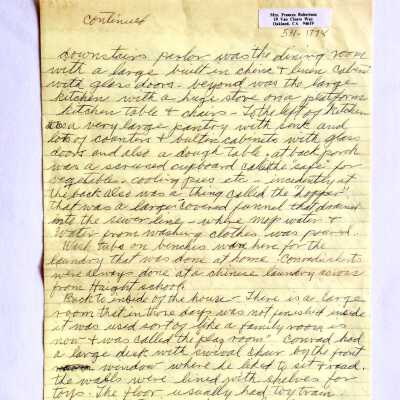 Continued
Mrs. Frances Robertson
19 Van Cleave Way
Oakland, CA 94619
531-1774
downstairs parlor was the dining room
with a large built in china & linen cabinet
with glass doors - beyond was the large
kitchen with a huge stove on a platform
kitchen table & chairs - to the left of kitchen
was a very large pantry with sink and
lots of counters & button cabinets with glass
doors and also a dough table - at back porch
was a screened cupboard called the "safe" for
vegetables - cooling pies etc - incidently at
the back also was a thing called the "hopper"
that was a large covered funnel that drained
into the sewer line - where mop water &
water from washing clothes was poured.
Wash tubs on benches were here for the
laundry that was done at home.
were always done at a chinese laundry across
from Haight school.
Back to inside of the house - There is a large
room that in those days was not finished inside
it was used sort of like a family room is
now & was called the play room" Conrad had
a large desk with swivel chair by the front
window where he liked to sit & read.
the walls were lined with shelves for
toys. The floor usually had toy train